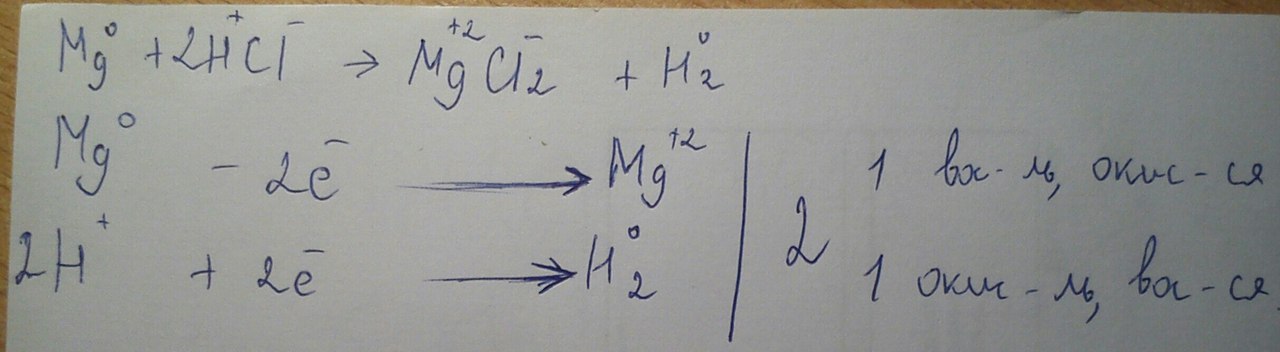 Mg⁰ + 2H⁺Cl⁻ → Mg⁺²Cl₂⁻ + H₂⁰
Mg⁰ - 2ē → Mg⁺² | 2 1 вос-ль, окис-ся
2H⁺ + 2ē → H₂⁰ | 1 окис-ль, вос-ся